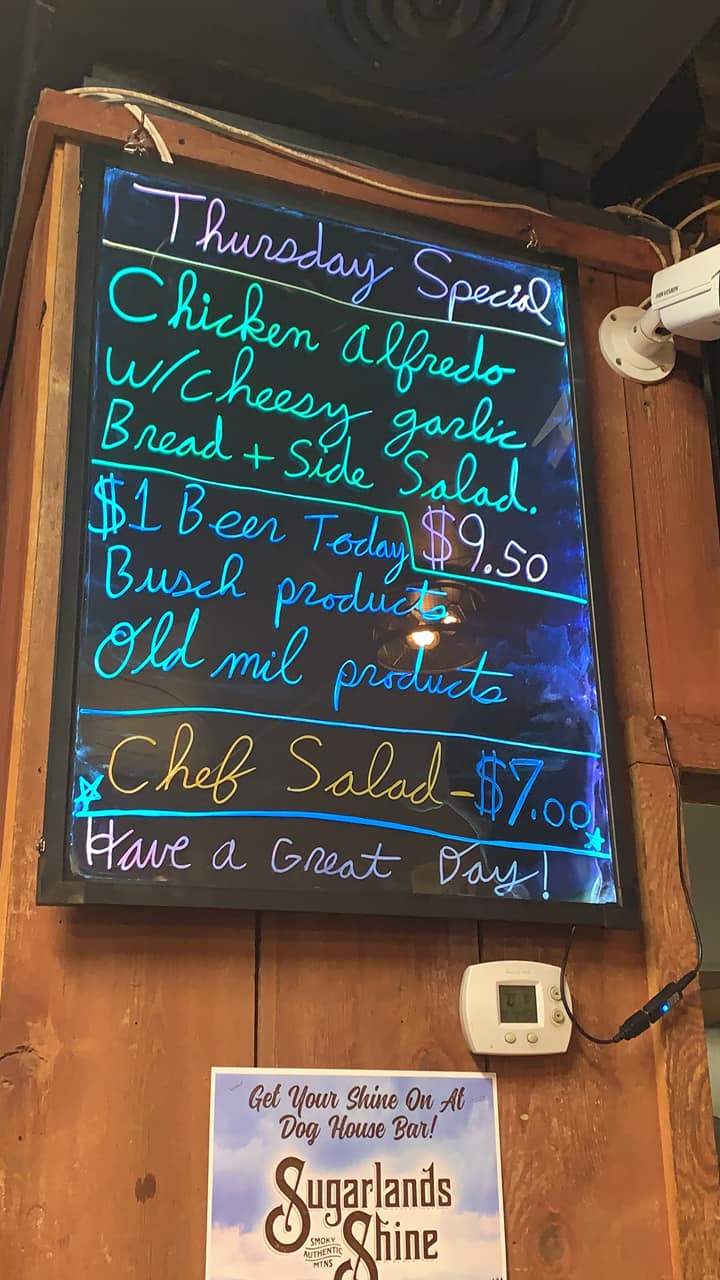 Thursday Special
Chicken Alfredo
w/cheesy garlic
Bread + Side Salad.
$9.50
$1 Beer Today
Busch products
Old mil products
Chef Salad - $7.00
Have a Great Day!
HIKVISION
Get Your Shine On At
Dog House Bar!
Sugarlands
Shine
SMOKY
AUTHENTIC
MTNS